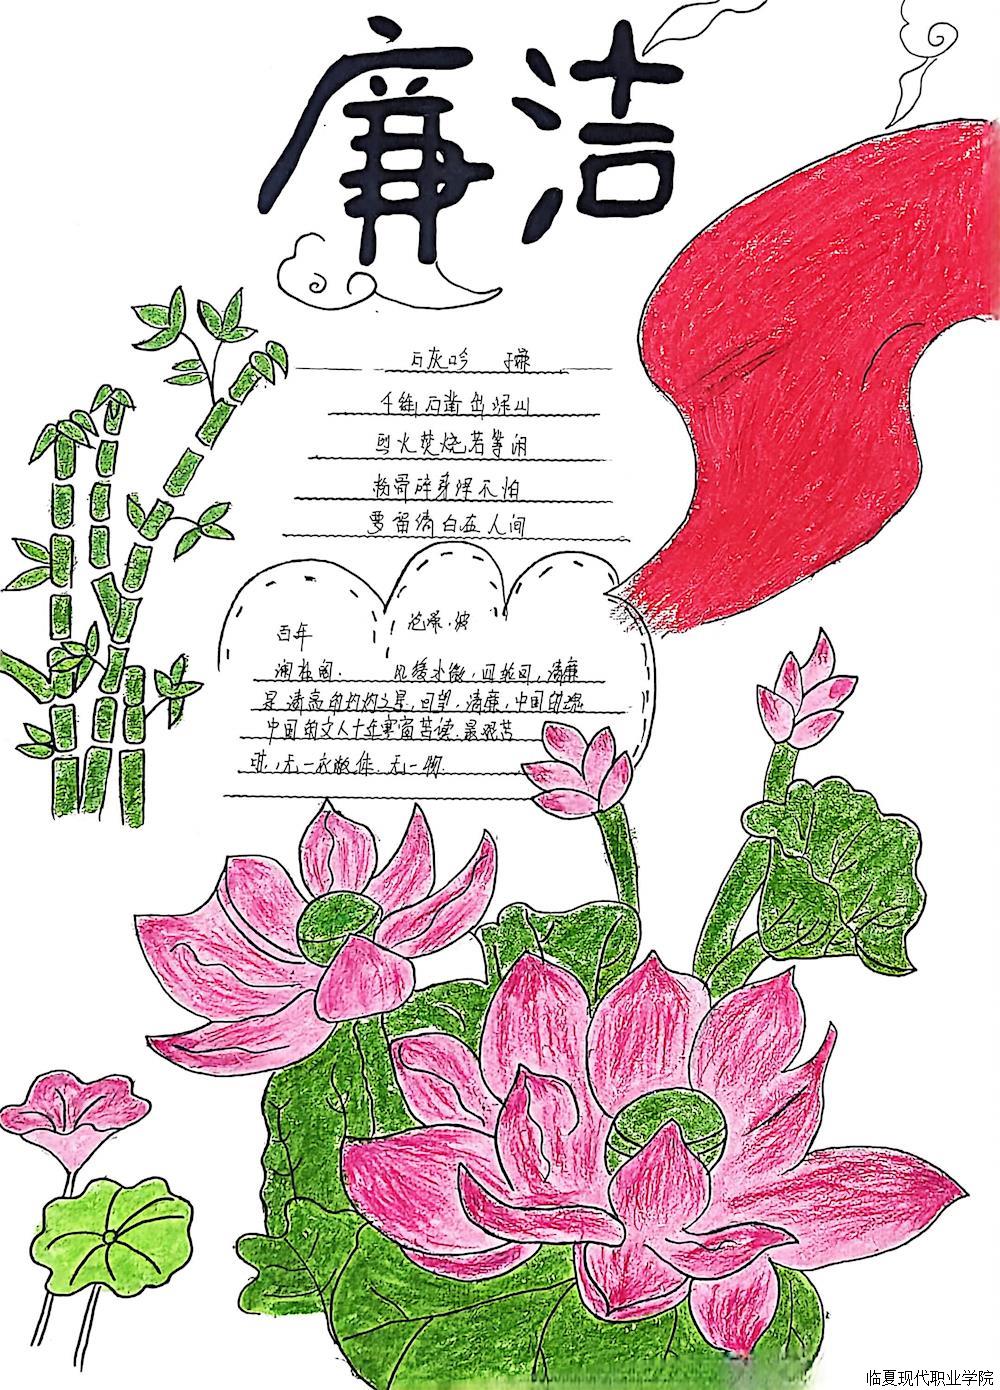 廉洁
石灰吟 于谦
千锤石凿出深山
烈火焚烧若等闲
粉骨碎身浑不怕
要留清白在人间
百年 沧桑.披
澜在阁. 风缓水微,四轮回,清廉
是清高的灼灼之星,回望.清廉,中国的源
中国的文人十年寒窗苦读.最艰苦
无一衣做伴.无一物.
临夏现代职业学院